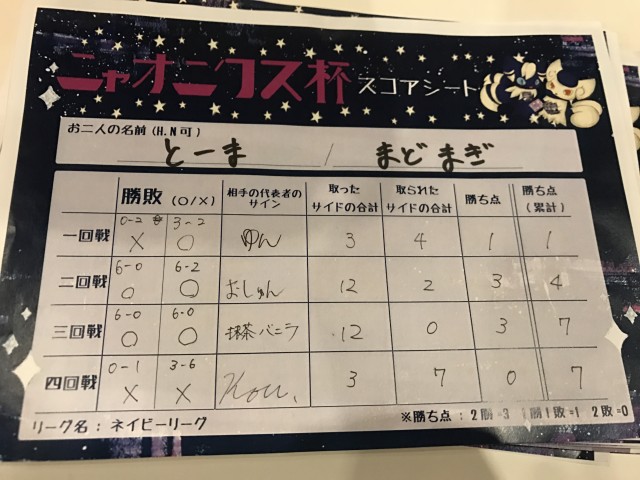 ニャオニクス杯 スコアシート
お二人の名前(H.N可)
とーま / まどまぎ
勝敗 (O/×) 相手の代表者のサイン 取ったサイドの合計 取られたサイドの合計 勝ち点 勝ち点(累計)
一回戦 0-2 × 3-2 ○ ゆん 3 4 1 1
二回戦 6-0 ○ 6-2 ○ おしゅん 12 2 3 4
三回戦 6-0 ○ 6-0 ○ 抹茶バニラ 12 0 3 7
四回戦 0-1 × 3-6 × Kou. 3 7 0 7
リーグ名：ネイビーリーグ ※勝ち点：2勝=3 1勝1敗=1 2敗=0